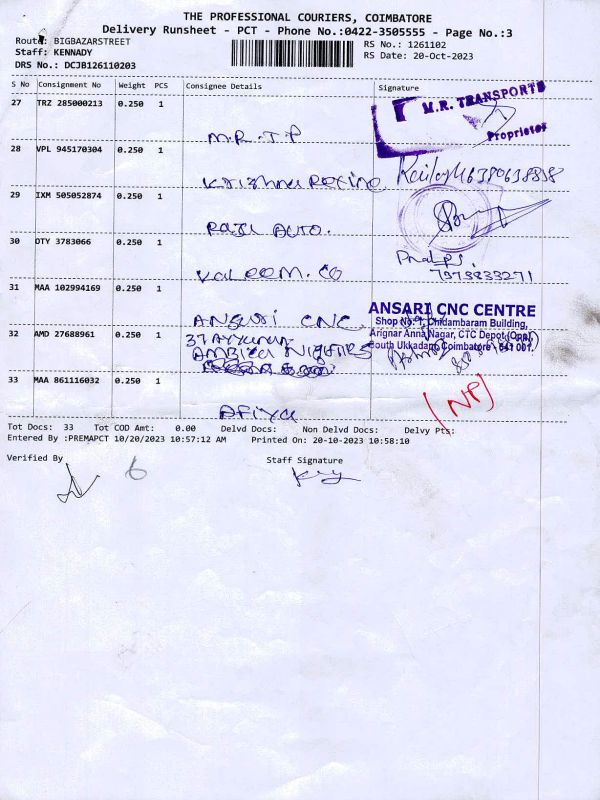 THE PROFESSIONAL COURIERS, COIMBATORE
Delivery Runsheet - PCT - Phone No.:0422-3505555 - Page No.:3
Route: BIGBAZARSTREET
RS No.: 1261102
Staff: KENNADY
RS Date: 20-Oct-2023
DRS No.: DCJB126110203
S No Consignment No Weight PCS Consignee Details Signature
27 TRZ 285000213 0.250 1
M.R. TRANSPORTS
Proprietor
M.R.T.P
28 VPL 945170304 0.250 1
Krishna Rexine
29 IXM 505052874 0.250 1
Raja Auto.
30 OTY 3783066 0.250 1
7373833271
Valeem.Co
31 MAA 102994169 0.250 1
ANSARI CNC CENTRE
Shop No. 1, Chidambaram Building,
Ansari CNC
32 AMD 27688961 0.250 1
Arignar Anna Nagar, CTC Depot (Opp),
South Ukkadam, Coimbatore - 641 001.
Ambika Nighties
33 MAA 861116032 0.250 1
(NP)
Afiya
Tot Docs: 33 Tot COD Amt: 0.00 Delvd Docs: Non Delvd Docs: Delvy Pts:
Entered By :PREMAPCT 10/20/2023 10:57:12 AM Printed On: 20-10-2023 10:58:10
Verified By Staff Signature
6